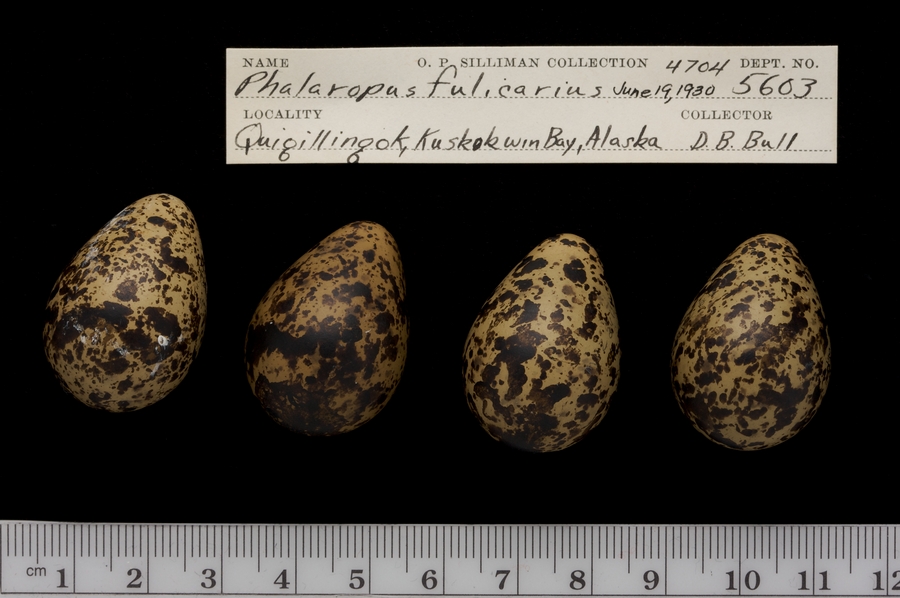 NAME O. P. SILLIMAN COLLECTION 4704 DEPT. NO.
Phalaropus fulicarius June 19, 1930 5603
LOCALITY COLLECTOR
Quigillingok, Kuskokwin Bay, Alaska D. B. Bull
cm 1 2 3 4 5 6 7 8 9 10 11 12